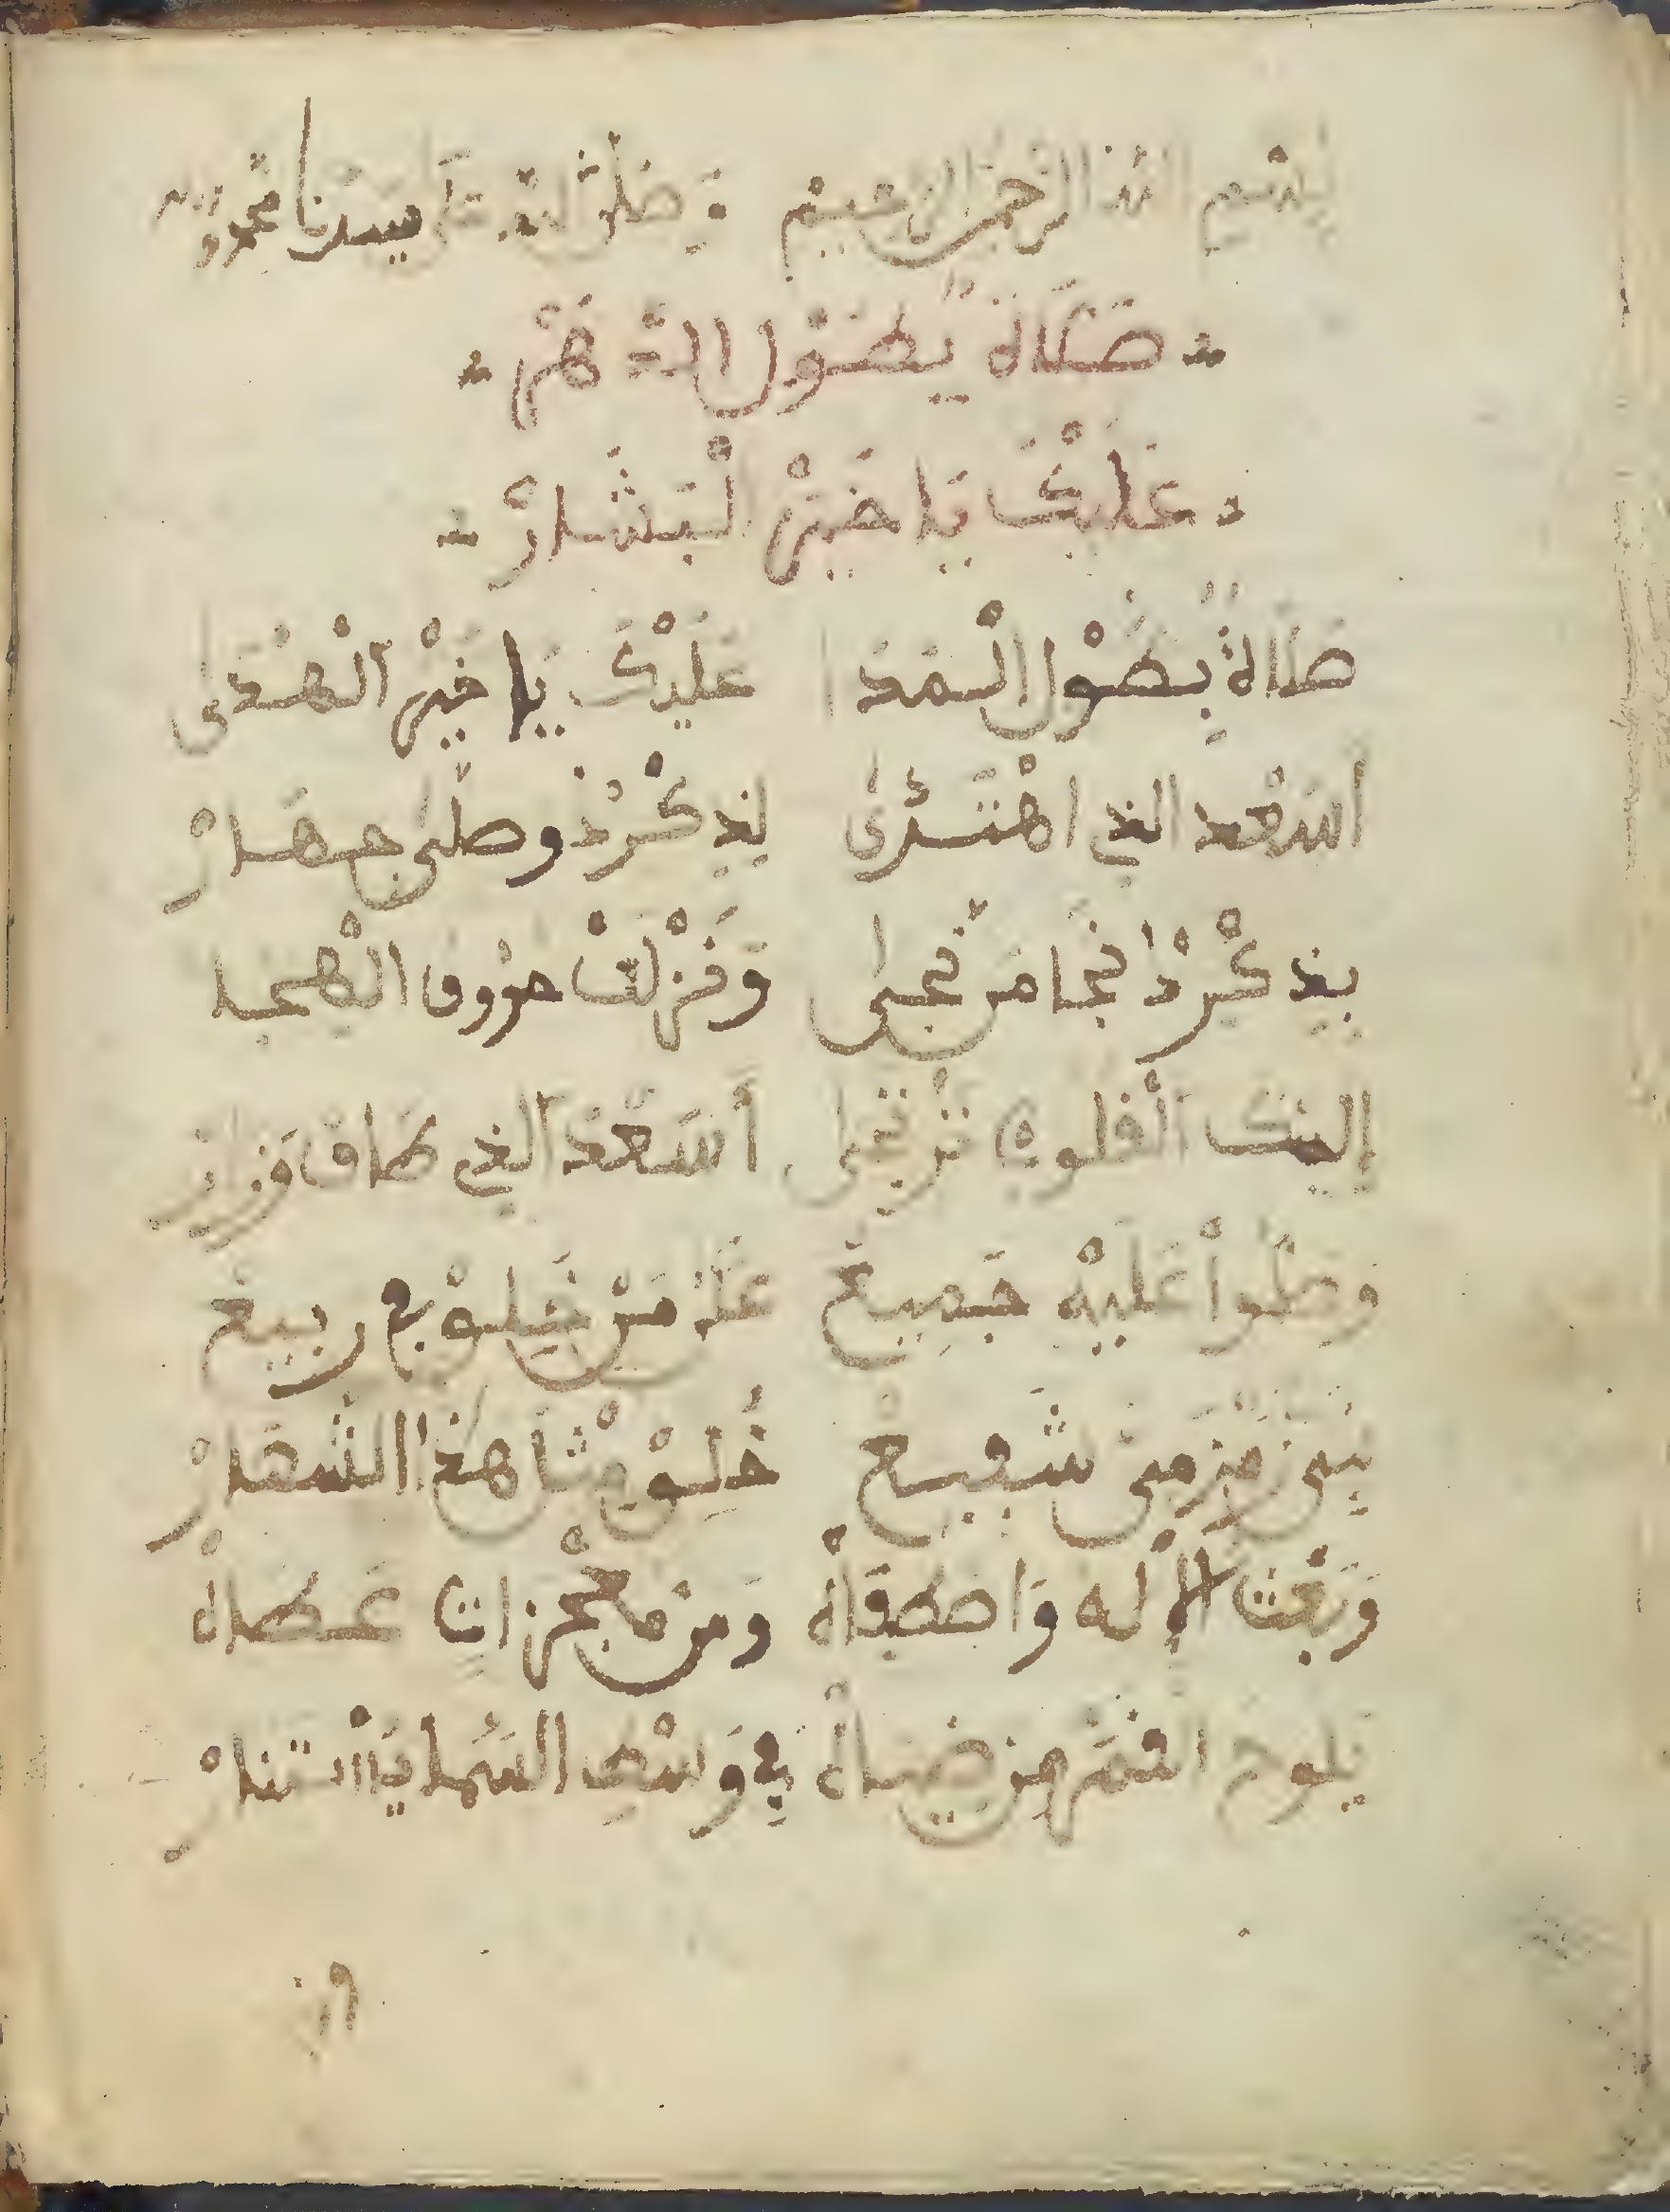 بِسْمِ اللهِ الرَّحْمٰنِ الرَّحِيمْ وَصَلَّى اللهُ عَلَى سَيِّدِنَا مُحَمَّدٍ
صَلَاةْ بِطُولْ الدَّهَرْ
عَلَيْكَ يَا خَيْرْ الْبَشَارْ
صَلَاةْ بِطُولْ الْمَدَا عَلَيْكَ يَا خَيْرْ الْهُدَى
أَسَعْد الذي اهْتَدَى بِذِكْرُ وصلى جهارْ
بِذِكْرُ نجَا من نجى وَنَزْلَتْ حروف الْهجا
إليك الْقلوب ترتجى أَسَعْد الذي طاف وزارْ
وصلّوا عَلَيْهْ جَمِيعْ عَلَى مَنْ خُلِقْ في ربيعْ
نبي زمزمي شفيعْ خُلِقْ مِثلْ هذا النَّهارْ
وَبَعْث الإله وَاصْطفَاهْ وَمن معجزات عطاهْ
يلوح القمر من ضياهْ فِي وَسْطِ السَّما يَاسْتنارْ